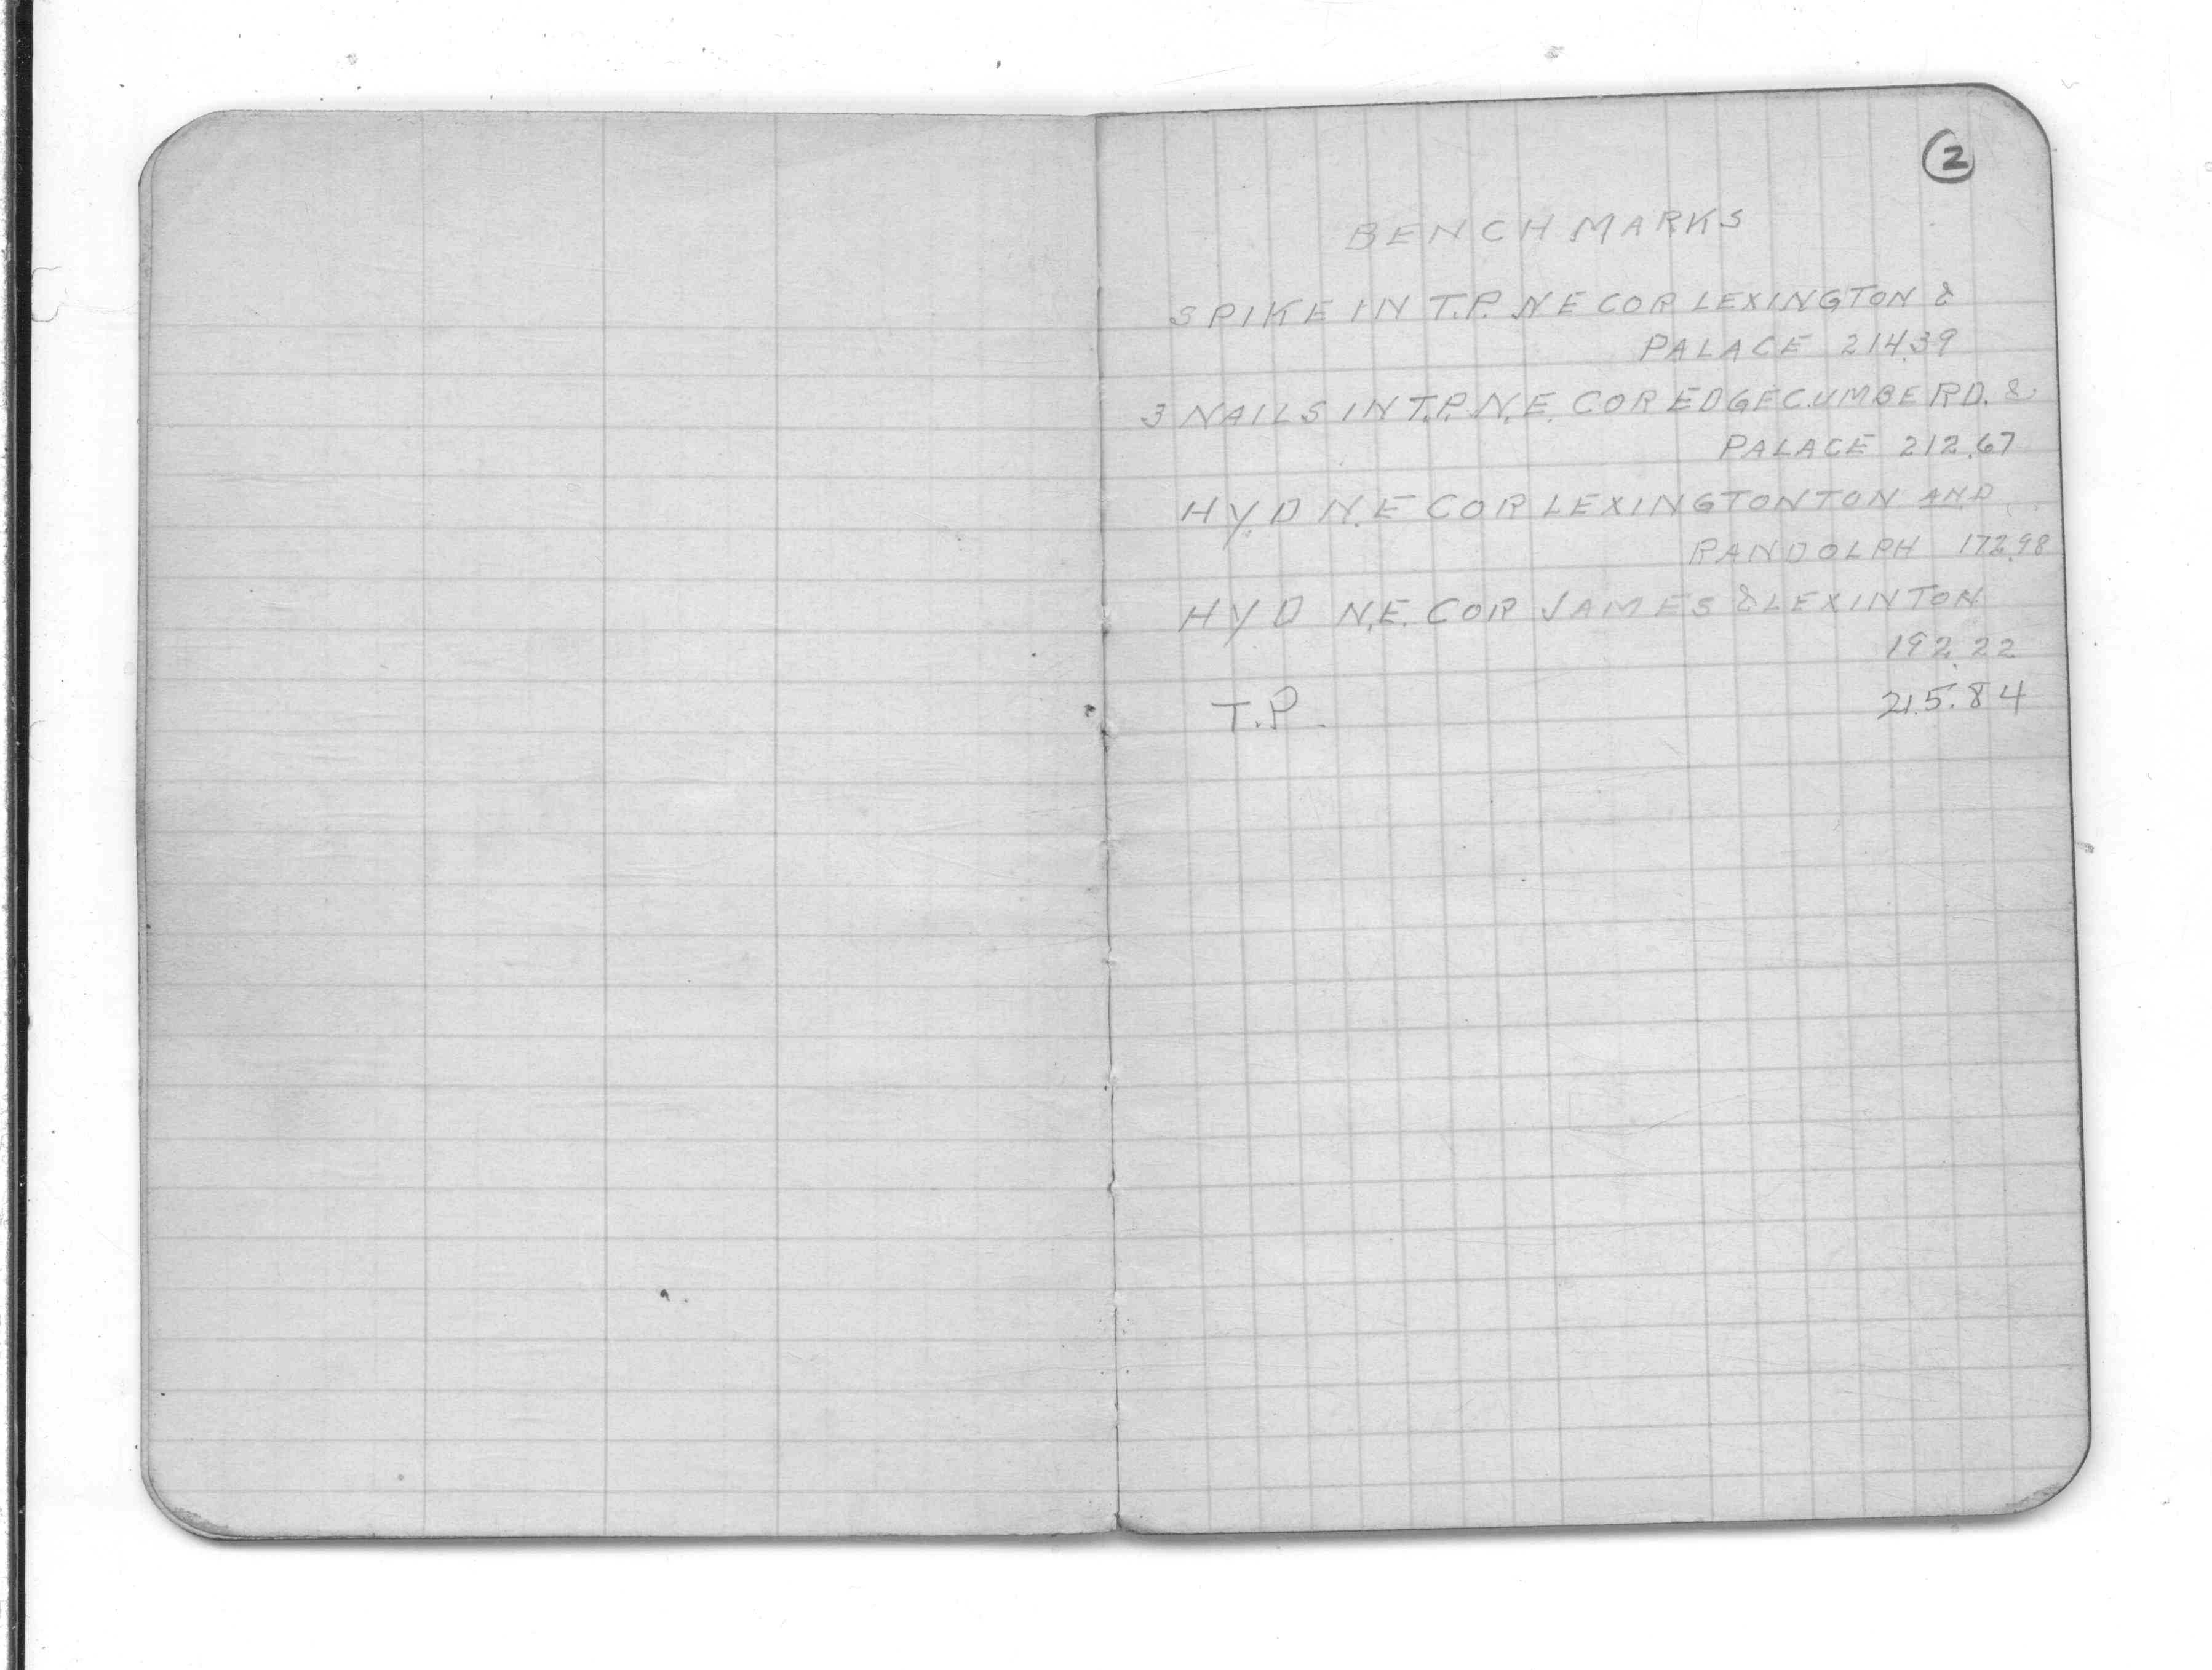 2
BENCH MARKS
SPIKE IN T.P. N E COR LEXINGTON &
PALACE 214.39
3 NAILS IN T.P. N.E. COR EDGECUMBE RD. &
PALACE 212.67
HYD N.E COR LEXINGTONTON AND
RANDOLPH 172.98
HYD N.E. COR JAMES & LEXINTON
192.22
T.P. 215.84